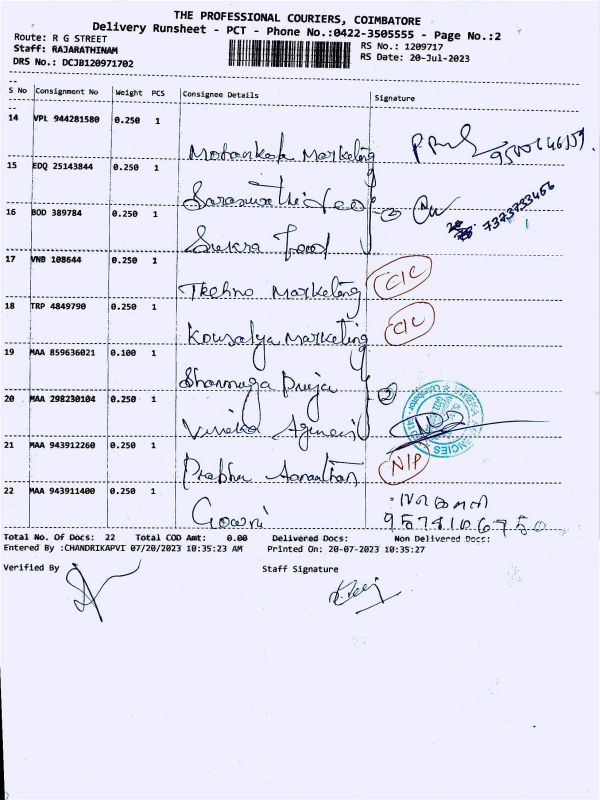 THE PROFESSIONAL COURIERS, COIMBATORE
Delivery Runsheet - PCT - Phone No.:0422-3505555 - Page No.:2
Route: R G STREET
RS No.: 1209717
Staff: RAJARATHINAM
RS Date: 20-Jul-2023
DRS No.: DCJB120971702
S No Consignment No Weight PCS Consignee Details Signature
14 VPL 944281580 0.250 1
Marketing
15 EDQ 25143844 0.250 1
Saraswathi
16 BOD 389784 0.250 1
2 7373733456
Sukra Food
17 VNB 108644 0.250 1
Techno Marketing C/C
18 TRP 4849790 0.250 1
Kousalya Marketing C/C
19 MAA 859636021 0.100 1
Shanmuga Priya
20 MAA 298230104 0.250 1
2
Viveka Agencies
21 MAA 943912260 0.250 1
Prabhu N/P
22 MAA 943911400 0.250 1
Gowri
Total No. Of Docs: 22 Total COD Amt: 0.00 Delivered Docs: Non Delivered Docs:
Entered By :CHANDRIKAPVI 07/20/2023 10:35:23 AM Printed On: 20-07-2023 10:35:27
Verified By Staff Signature